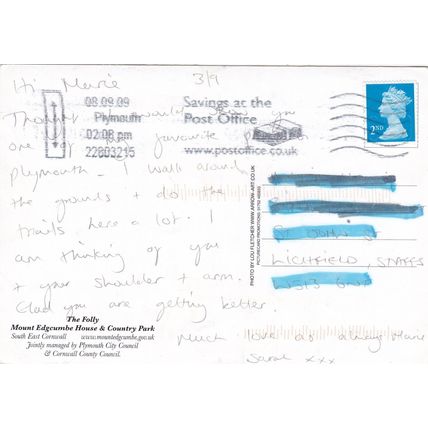 Hi Marie
3/9
08.09.09
Plymouth
02:08 pm
22803215
Savings at the
Post Office
www.postoffice.co.uk
2ND
Thought I would show you
one of my favourite places in
plymouth - I walk around
the grounds + do the
trails here a lot. I
am thinking of you
+ your shoulder + arm.
Glad you are getting better.
Much love as always Marie
Sarah xxx
St John's
LICHFIELD, STAFFS
PHOTO BY LOU FLETCHER WWW.ARRON-ART.CO.UK
The Folly
Mount Edgcumbe House & Country Park
South East Cornwall www.mountedgcumbe.gov.uk
Jointly managed by Plymouth City Council
& Cornwall County Council.